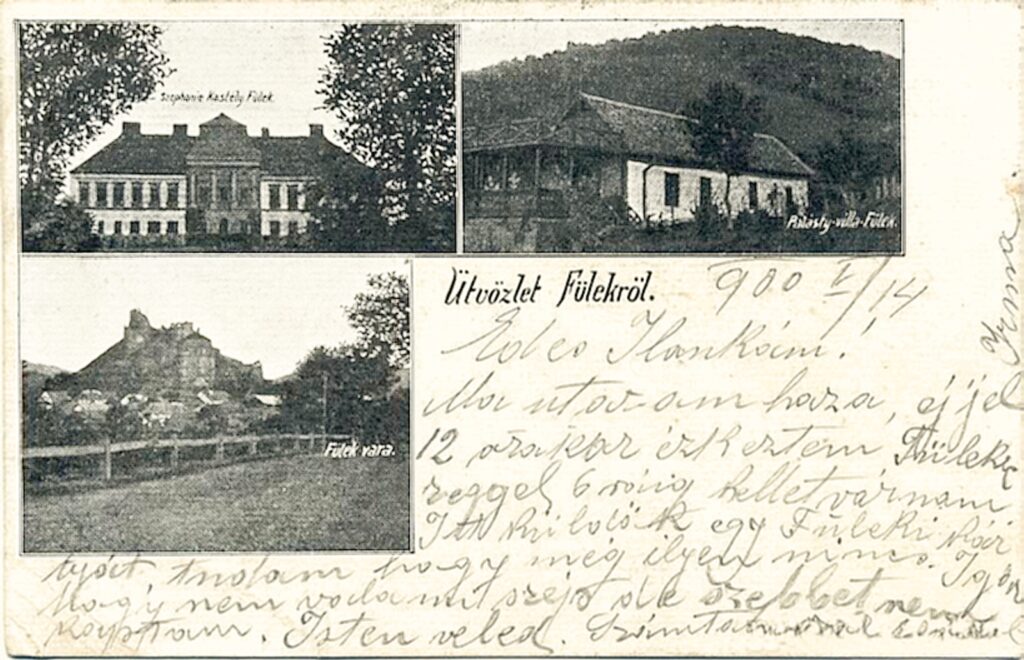 Stephanie Kastély Fülek.
Palásty-villa-Fülek.
Fülek vára.
Üdvözlet Fülekről.
900 V/14
Édes Ilonkám!
Ma utazam haza, éjjel
12 órakor érkeztem Fülekre
reggel 6 óráig kellet várnam
Itt küldök egy Füleki kár
tyát, tudom hogy még ilyen nincs. Igaz
hogy nem valami szép de szebbet nem
kaptam. Isten veled.
Irma